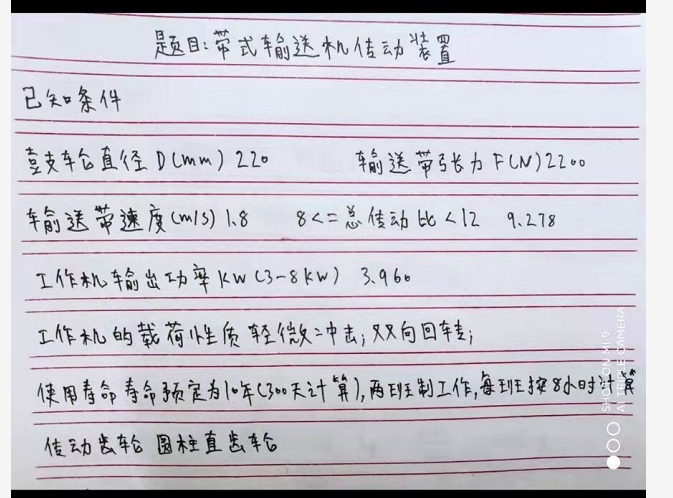 题目:带式输送机传动装置
已知条件
鼓轮直径D(mm) 220 输送带张力F(N)2200
输送带速度(m/s) 1.8 8<=总传动比<12 9.278
工作机输出功率KW(3-8KW) 3.960
工作机的载荷性质 轻微冲击;双向回转;
使用寿命 寿命预定为10年(300天计算),两班制工作,每班按8小时计算
传动齿轮 圆柱直齿轮
SHOT ON MI 9
AI TRIPLE CAMERA